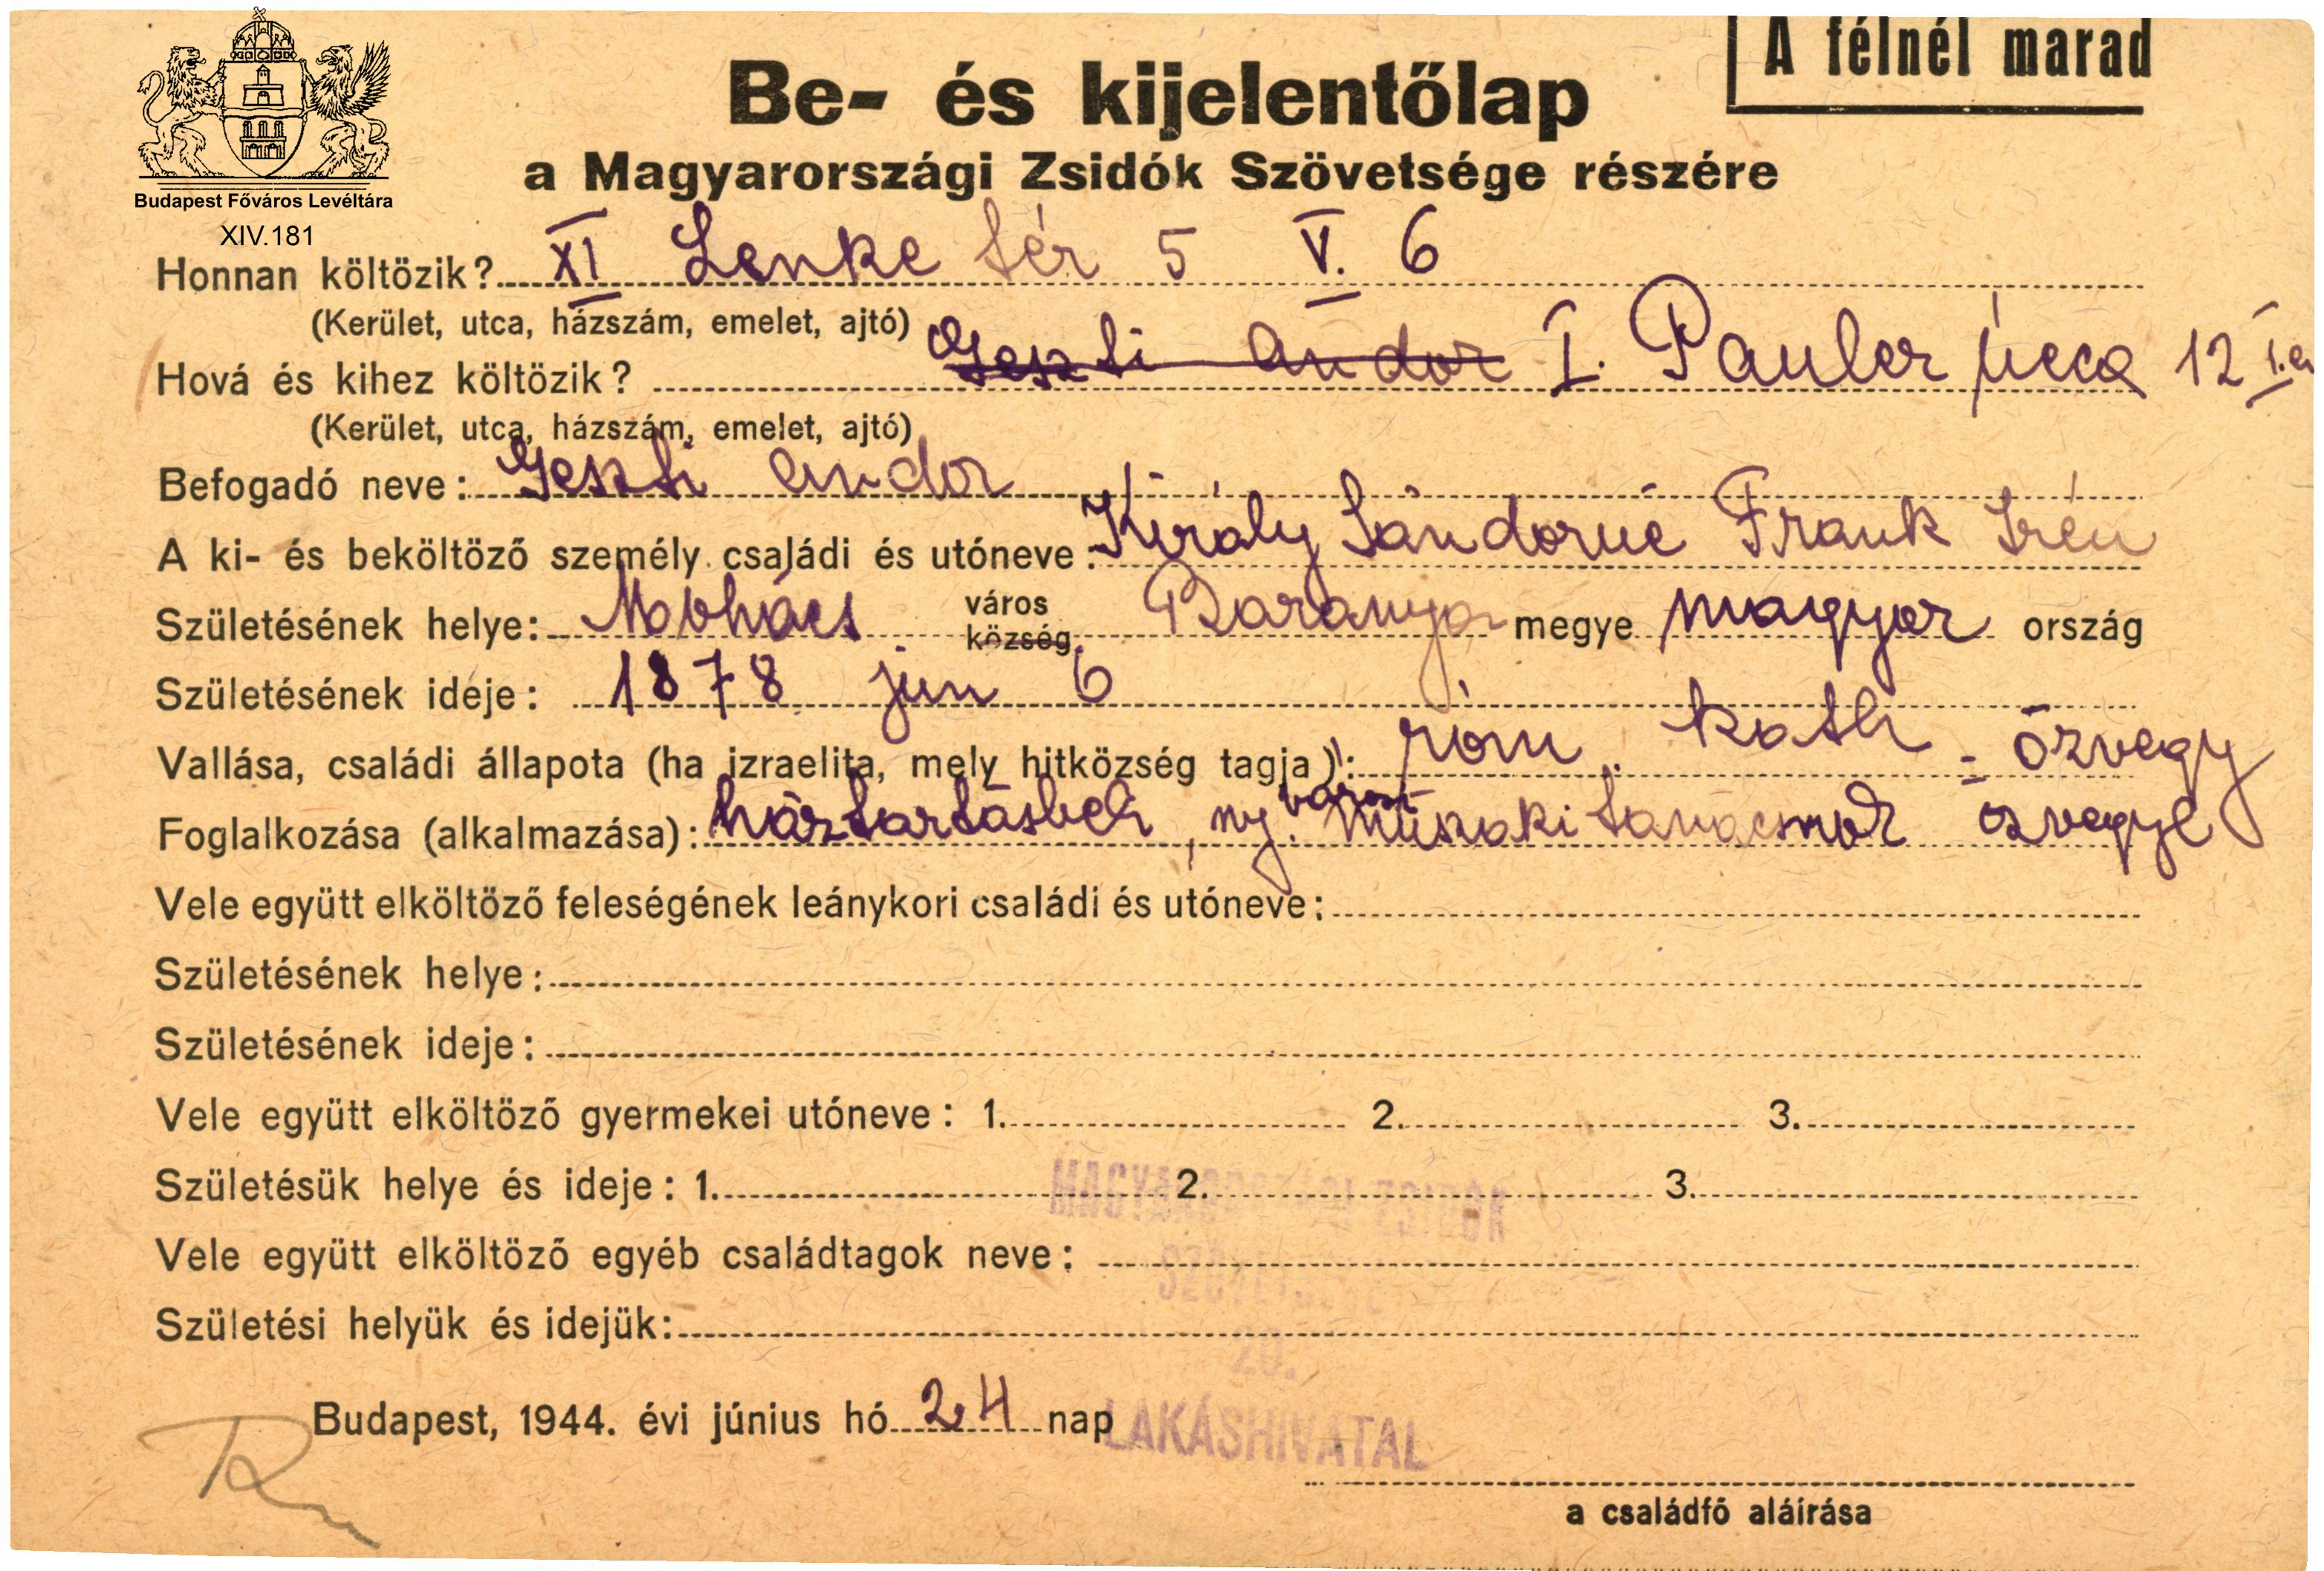 A félnél marad
Be- és kijelentőlap
a Magyarországi Zsidók Szövetsége részére
Budapest Főváros Levéltára
XIV.181
Honnan költözik? XI Lenke tér 5 V. 6
(Kerület, utca, házszám, emelet, ajtó)
Hová és kihez költözik? Geszti Andor I. Pauler ucca 12 I. e
(Kerület, utca, házszám, emelet, ajtó)
Befogadó neve: Geszti Andor
A ki- és beköltöző személy családi és utóneve: Király Sándorné Frank Irén
Születésének helye: Mohács város község Baranya megye magyar ország
Születésének ideje: 1878 jun 6
Vallása, családi állapota (ha izraelita, mely hitközség tagja): róm. kath - özvegy
Foglalkozása (alkalmazása): háztartásbeli, ny. városi műszaki tanácsnok özvegye
Vele együtt elköltöző feleségének leánykori családi és utóneve:
Születésének helye:
Születésének ideje:
Vele együtt elköltöző gyermekei utóneve: 1. 2. 3.
Születésük helye és ideje: 1. 2. 3.
MAGYARORSZÁGI ZSIDÓK
Vele együtt elköltöző egyéb családtagok neve:
SZÖVETSÉGE
Születési helyük és idejük:
20.
Budapest, 1944. évi június hó 24 nap
LAKÁSHIVATAL
a családfő aláírása